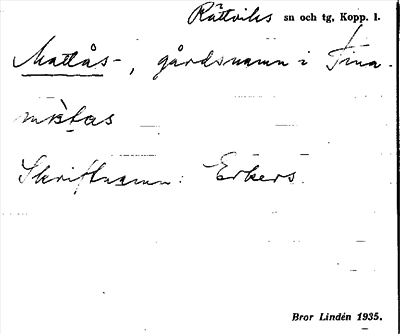 Rättviks sn och tg, Kopp. l.
Mattås-, gårdsnamn i
Skriftnamn: Erkers.
Bror Lindén 1935.